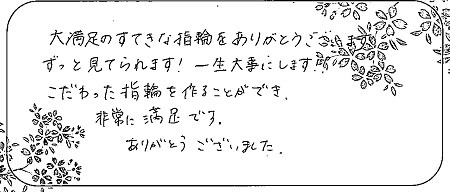 大満足のすてきな指輪をありがとうご
ずっと見てられます！一生大事にします！
こだわった指輪を作ることができ、
非常に満足です。
ありがとうございました。